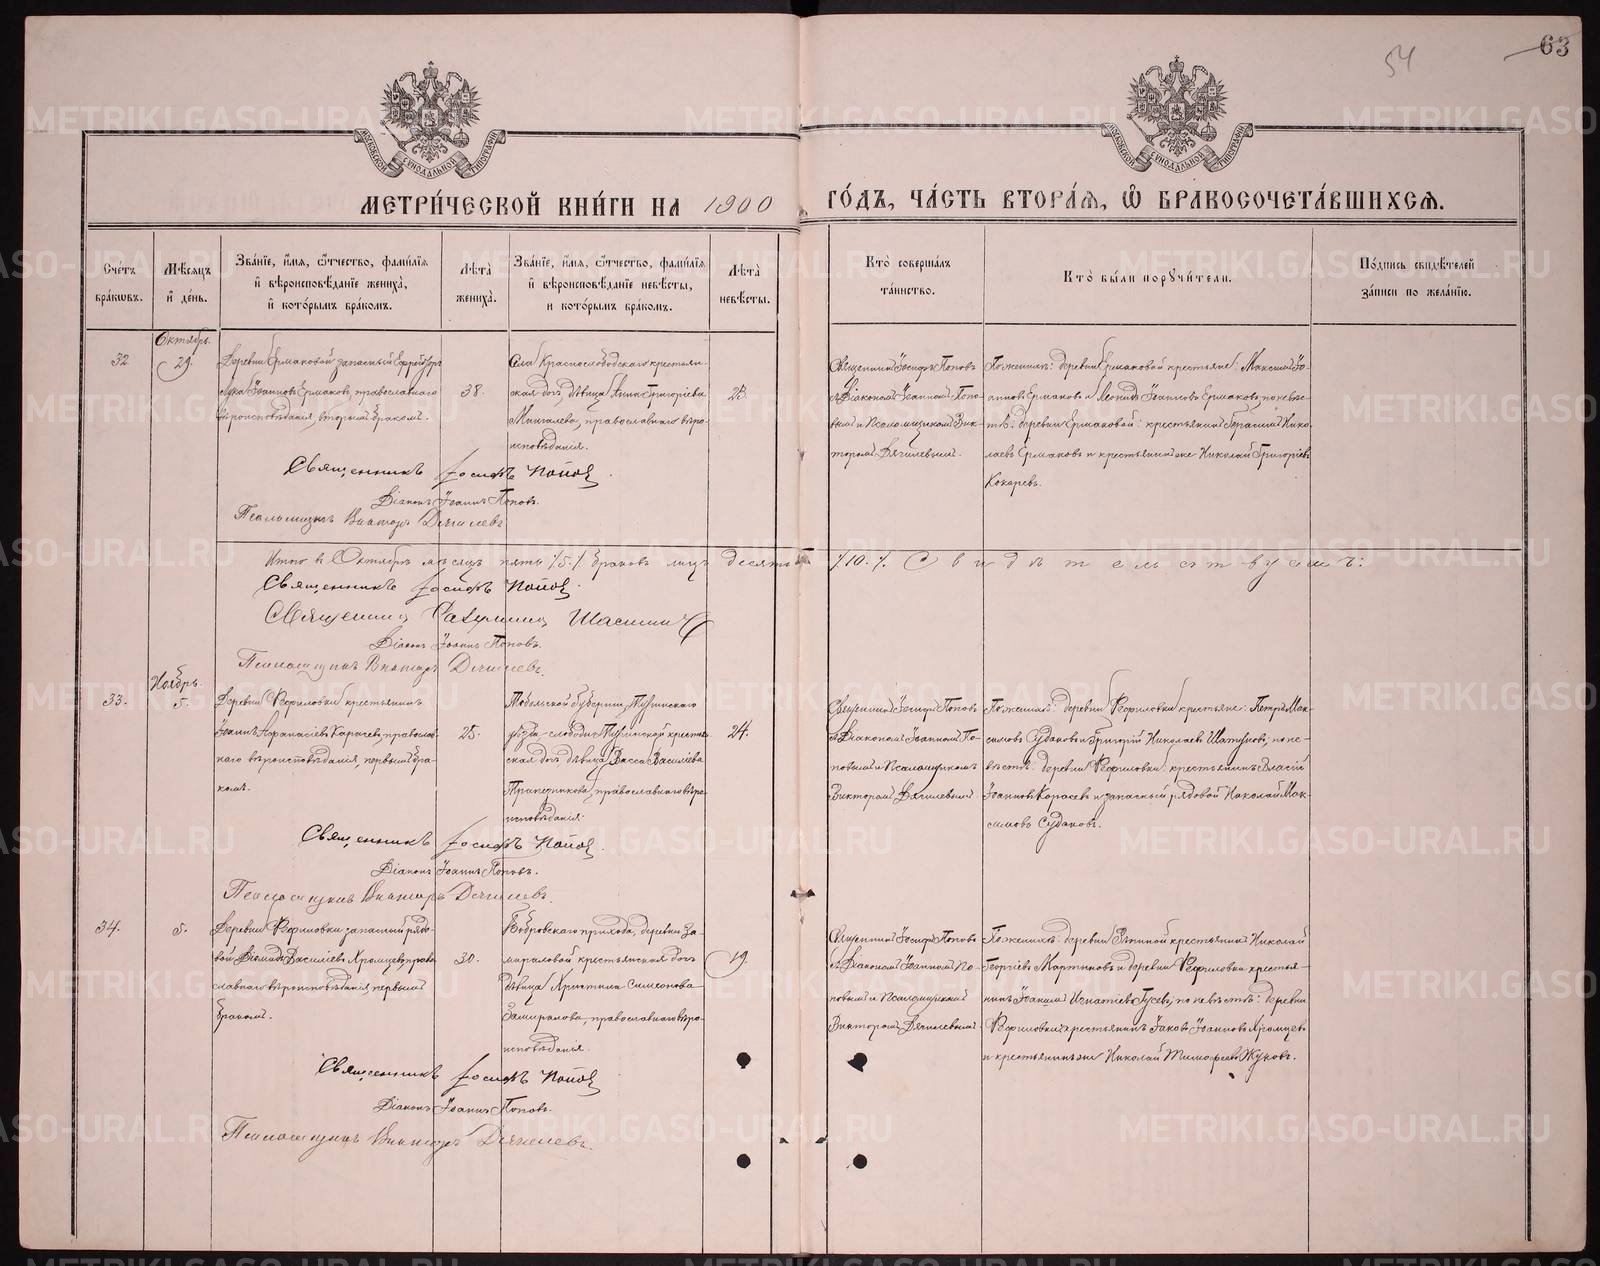 54
63
МОСКОВСКОЙ СѴНОДАЛЬНОЙ ТИПОГРАФІИ
МОСКОВСКОЙ СѴНОДАЛЬНОЙ ТИПОГРАФІИ
МЕТРИ́ЧЕСКОЙ КНИ́ГИ НА 1900 ГО́ДЪ, ЧА́СТЬ ВТОРА́Я, Ѽ БРАКОСОЧЕТА́ВШИХСЯ.
Сче́тъ бра́кωвъ.
Мѣ́сяцъ и҆ де́нь.
Зва́нїе, и҆́мя, ѻ҆́тчество, фами́лїя
и҆ вѣроисповѣ́данїе жениха̀,
и҆ кото́рымъ бра́комъ.
Лѣ́та̀ жениха̀.
Зва́нїе, и҆́мя, ѻ҆́тчество, фами́лїя
и҆ вѣроисповѣ́данїе невѣ́сты,
и҆ кото́рымъ бра́комъ.
Лѣ́та̀ невѣ́сты.
Кто̀ соверша́лъ та́инство.
Кто̀ бы́ли порꙋчи́тели.
По́дпись свидѣ́телей за́писи по жела́нїю.
Октябрь.
32
29.
Деревни Ермаковой запасный Ефрейторъ
Лука Іоанновъ Ермаковъ, православнаго
вѣроисповѣданія, вторымъ бракомъ.
38.
Села Краснослободскаго крестьян-
ская дочь, дѣвица Анна Григоріева
православнаго вѣро-
исповѣданія.
23.
Священникъ Іосифъ Поповъ
съ Діакономъ Іоанномъ Попо-
вымъ и Псаломщикомъ Вик-
торомъ Дягилевымъ.
По женихѣ: деревни Ермаковой крестьяне: Максимъ Іо-
анновъ Ермаковъ и Леонидъ Іоанновъ Ермаковъ; по невѣс-
тѣ: деревни Ермаковой: крестьянинъ Герасимъ Нико-
лаевъ Ермаковъ и крестьянинъ же Николай Григоріевъ
Кокаревъ.
Священникъ Іосифъ Поповъ.
Діаконъ Іоаннъ Поповъ.
Псаломщикъ Викторъ Дягилевъ
Итого въ Октябрѣ мѣсяцѣ пять /5./ браковъ лицъ десять /10./. Свидѣтельствуемъ:
Священникъ Іосифъ Поповъ.
Священникъ
Діаконъ Іоаннъ Поповъ.
Псаломщикъ Викторъ Дягилевъ.
Ноябрь.
33.
5.
Деревни Рефиловки крестьянинъ
Іоаннъ Аѳанасіевъ Карасевъ, православ-
наго вѣроисповѣданія, первымъ бра-
комъ.
25.
Тобольской губерніи, Туринскаго
уѣзда слободы Туринской крестьян-
ская дочь дѣвица Васса Василіева
Трапезникова, православнаго вѣро-
исповѣданія.
24.
Священникъ Іосифъ Поповъ
съ Діакономъ Іоанномъ По-
повымъ и Псаломщикомъ
Викторомъ Дягилевымъ.
По женихѣ: деревни Рефиловки крестьяне: Петръ Мак-
симовъ Судаковъ и Григорій Николаевъ Шатуновъ; по не-
вѣстѣ: деревни Рефиловки: крестьянинъ Власій
Іоанновъ Карасевъ и запасный рядовой Николай Мак-
симовъ Судаковъ.
Священникъ Іосифъ Поповъ.
Діаконъ Іоаннъ Поповъ.
Псаломщикъ Викторъ Дягилевъ.
34.
5.
Деревни Рефиловки запасный рядо-
вой Діомидъ Василіевъ Хромцевъ, право-
славнаго вѣроисповѣданія, первымъ
бракомъ.
30.
Бобровскаго прихода, деревни За-
мираловой крестьянская дочь
дѣвица Христина Симеонова
Замиралова, православнаго вѣро-
исповѣданія.
19
Священникъ Іосифъ Поповъ
съ Діакономъ Іоанномъ По-
повымъ и Псаломщикомъ
Викторомъ Дягилевымъ.
По женихѣ: деревни Рѣпиной крестьянинъ Николай
Георгіевъ Мартиновъ и деревни Рефиловки крестья-
нинъ Іоакимъ Игнатіевъ Гусевъ; по невѣстѣ: деревни
Рефиловки: крестьянинъ Іаковъ Іоанновъ Хромцевъ
и крестьянинъ же Николай Тимоѳеевъ Жуковъ.
Священникъ Іосифъ Поповъ
Діаконъ Іоаннъ Поповъ.
Псаломщикъ Викторъ Дягилевъ.
METRIKI.GASO-URAL.RU